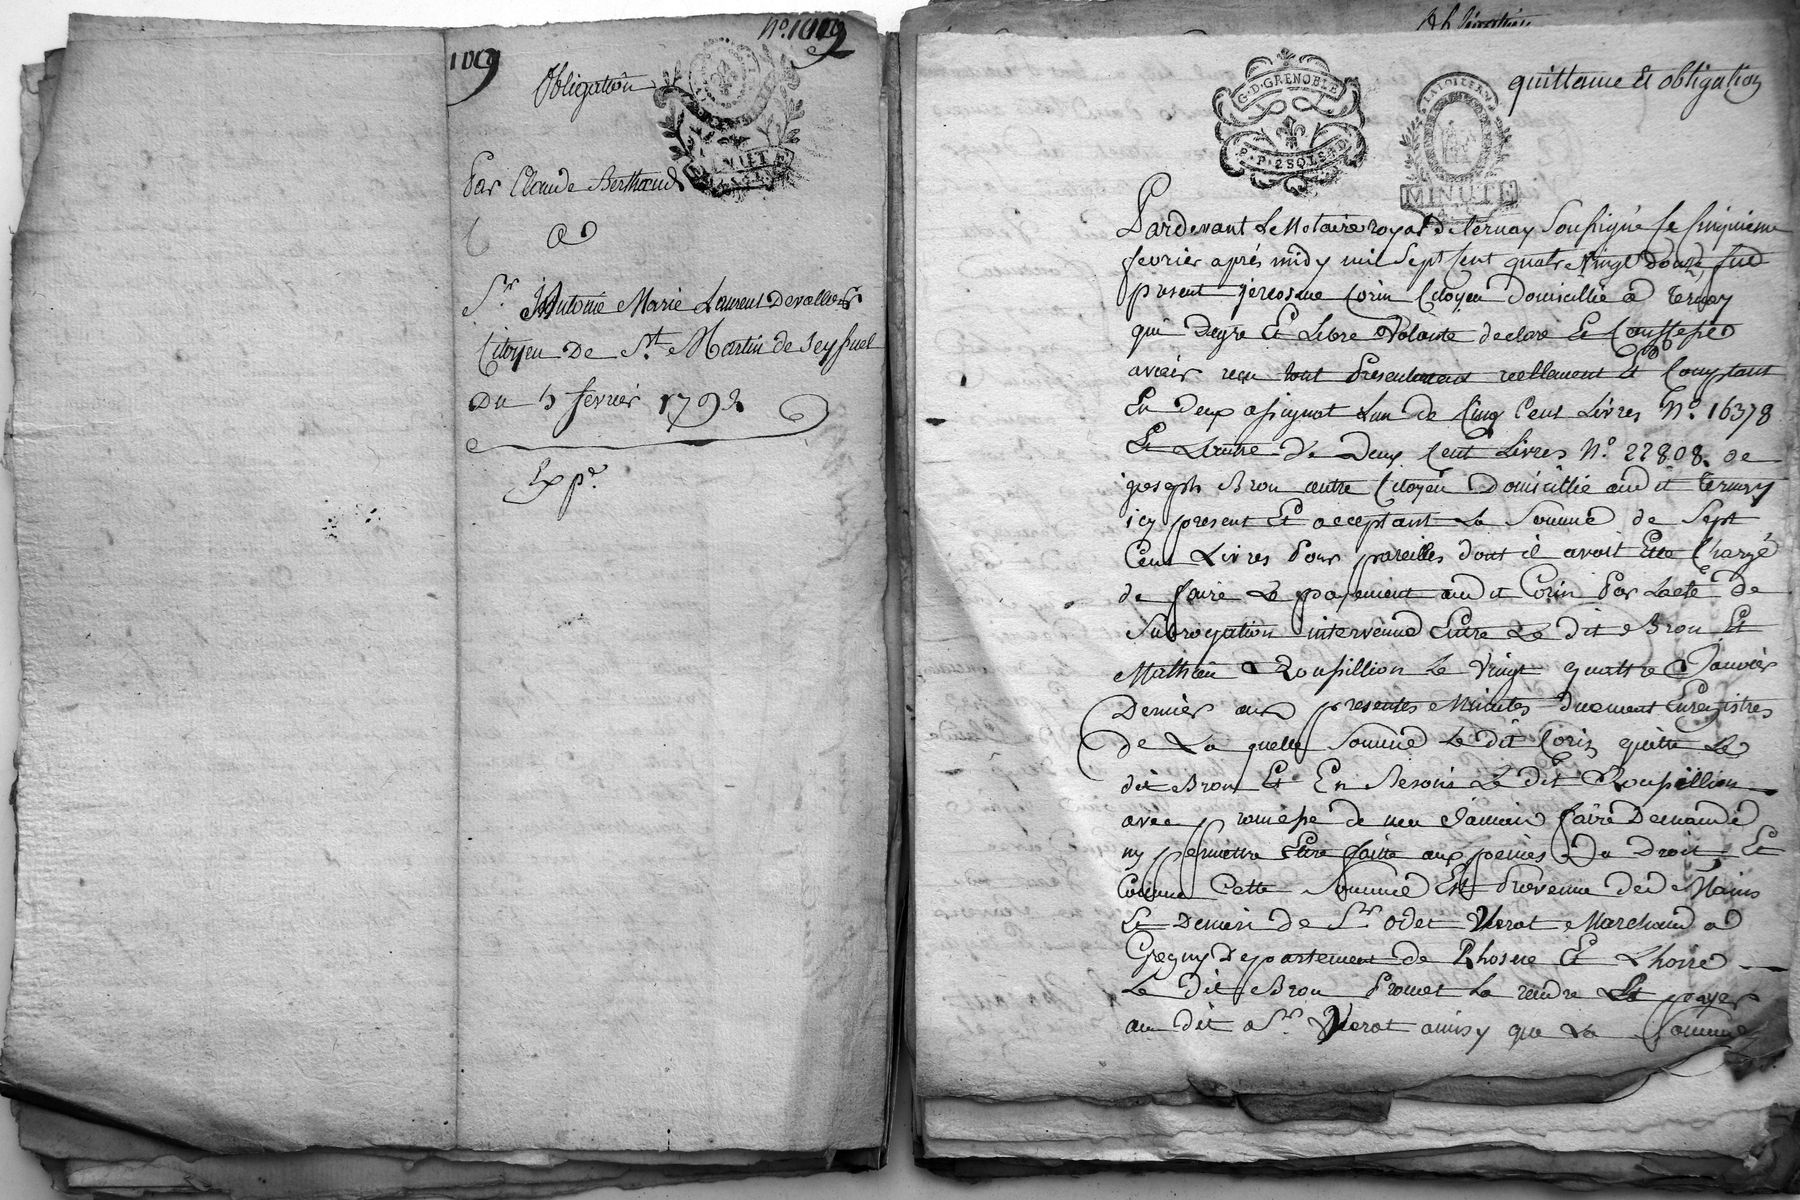 109
Obligation
MINUTE
Par Claude Berthaud
a
Sr Antoine Marie Laurent Devallier
Citoyen De St Martin de Seyssuel
Du 5 fevrier 1792
Exp.
quittance et obligation
G.D.GRENOBLE
P.P.2SOLS4D
LA LOI LE R
MINUTE
Pardevant Le Notaire royal de ternay Soussigné Le Cinquieme
fevrier aprés midy mil Sept Cent quatre Vingt Douze fud
present jerosme Corin Citoyen domicillié a ternay
qui Degre Et Libre Volonté declare Et Confesse
avoir reçu tout Presentement reellement Et Comptant
En deux assignat Lun de Cinq Cent Livres N.° 16378
Et Lautre de Deux Cent Livres N.° 22808. de
joseph Bron autre Citoyen Domicillié audit ternay
icy present Et acceptant La Somme de Sept
Cent Livres Pour pareilles dont il avoit Eté Chargé
de faire Le payement audit Corin Par Lacte de
Subrogation intervenue Entre Le dit Bron Et
Mathieu Roupillion Le Vingt quattre Janvier
Dernier aux presentes Minutes duement Enregistres
de La quelle Somme Le dit Corin quitte Le
dit Bron Et En Besoin Le dit Roupillion
avec promesse de neu Jamais faire Demande
ny permettre Etre faitte aux peines Du Droit, Et
Comme Cette Somme Est Prevenue de de Mains
Et Denier de Sr Odet Verot Marchand a
Gregny Departement de Rhosne Et Lhoire
Le dit Bron Promet La rendre Et payer
au dit Sr Verot ainsy que La Somme